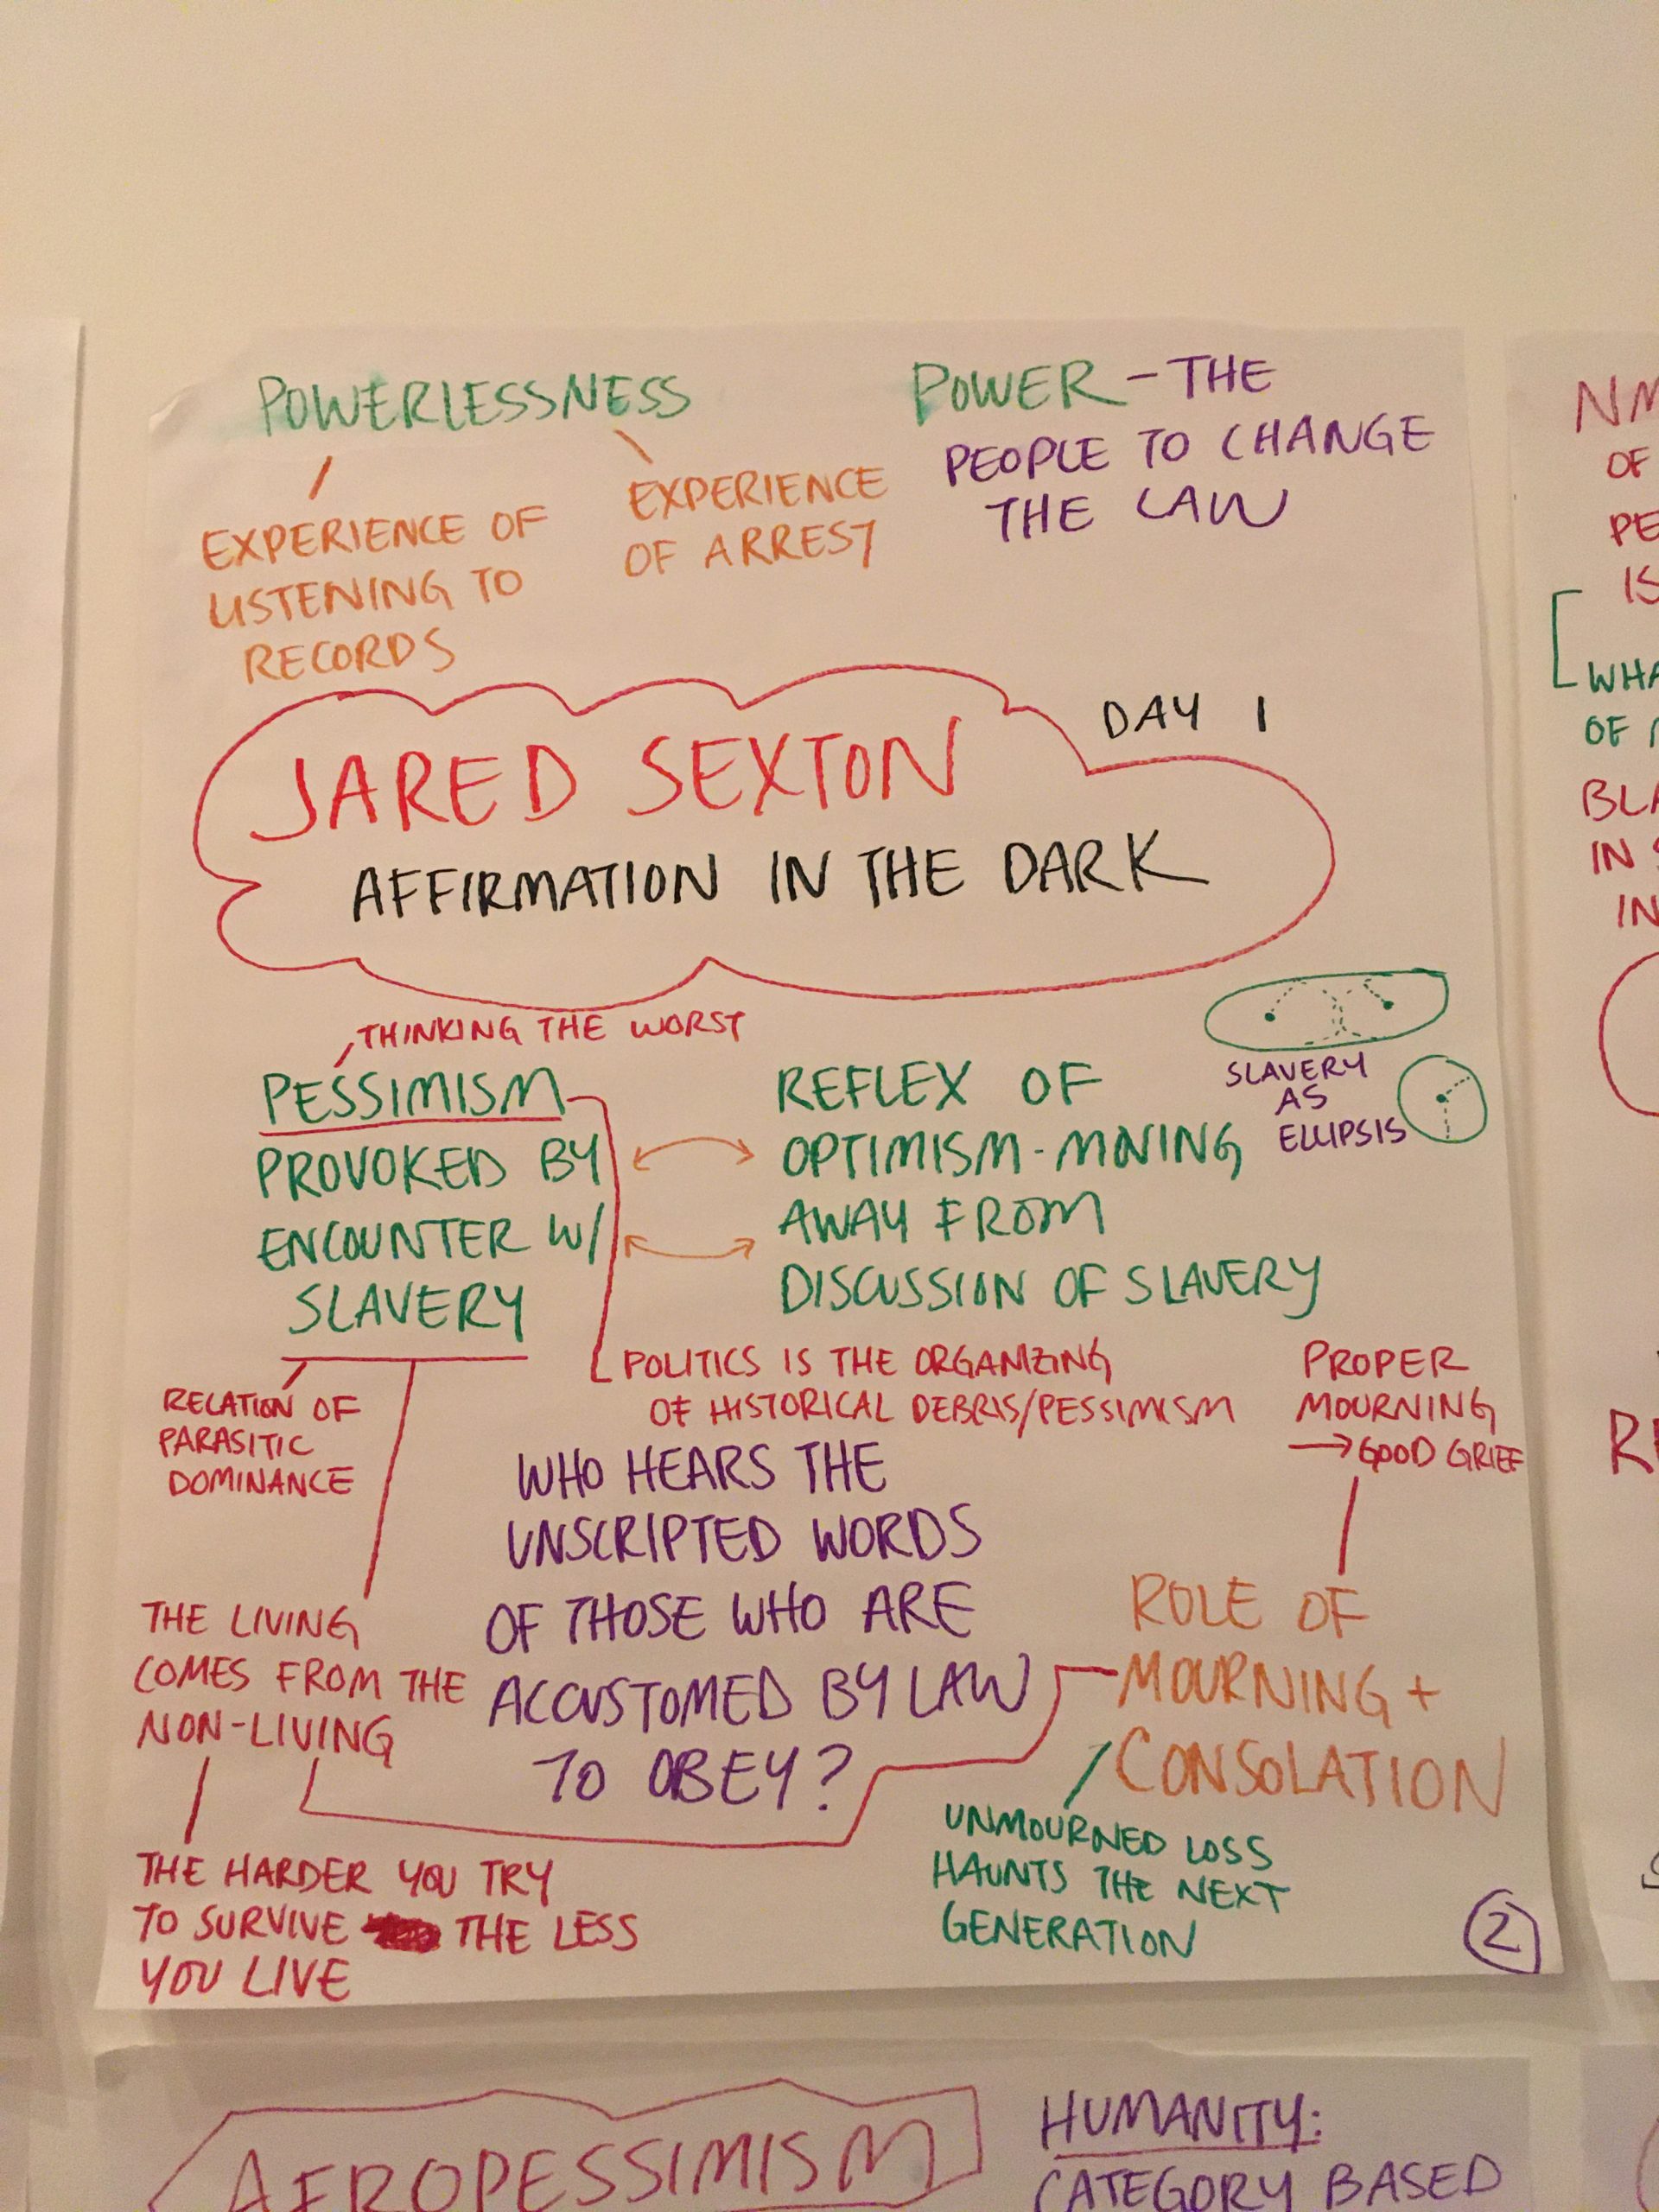 POWERLESSNESS
EXPERIENCE OF
LISTENING TO
RECORDS
EXPERIENCE
OF ARREST
POWER - THE
PEOPLE TO CHANGE
THE LAW
DAY 1
JARED SEXTON
AFFIRMATION IN THE DARK
THINKING THE WORST
PESSIMISM
PROVOKED BY
ENCOUNTER W/
SLAVERY
REFLEX OF
OPTIMISM - MOVING
AWAY FROM
DISCUSSION OF SLAVERY
SLAVERY
AS
ELLIPSIS
POLITICS IS THE ORGANIZING
OF HISTORICAL DEBRIS/PESSIMISM
RELATION OF
PARASITIC
DOMINANCE
PROPER
MOURNING
→ GOOD GRIEF
WHO HEARS THE
UNSCRIPTED WORDS
OF THOSE WHO ARE
ACCUSTOMED BY LAW
TO OBEY?
THE LIVING
COMES FROM THE
NON-LIVING
ROLE OF
MOURNING +
CONSOLATION
THE HARDER YOU TRY
TO SURVIVE THE LESS
YOU LIVE
UNMOURNED LOSS
HAUNTS THE NEXT
GENERATION
2
OF
PE
IS
WHA
OF
BLA
IN
IN
AFROPESSIMISM
HUMANITY:
CATEGORY BASED